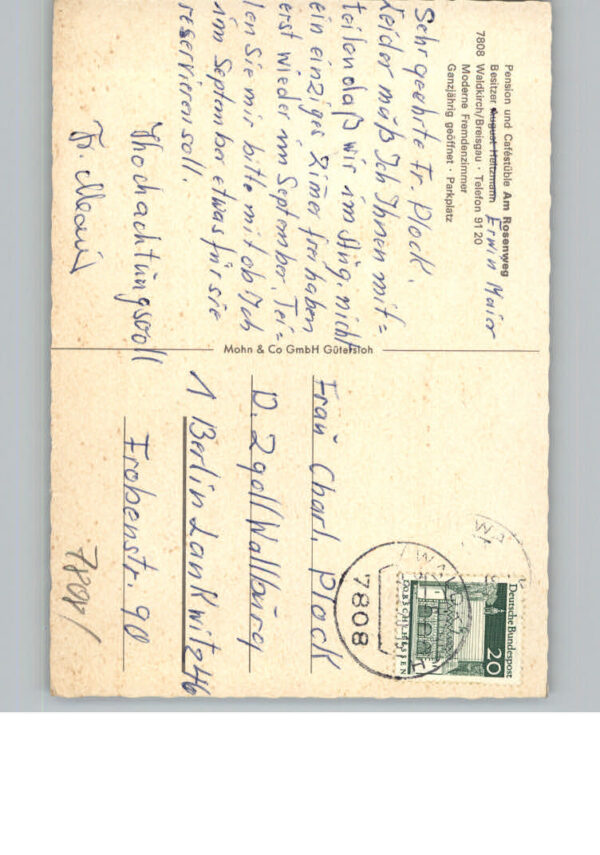 Pension und Caféstüble Am Rosenweg
Besitzer August Heitzmann Erwin Maier
7808 Waldkirch/Breisgau · Telefon 91 20
Moderne Fremdenzimmer
Ganzjährig geöffnet · Parkplatz
Sehr geehrte Fr. Plock.
Leider muß Ich Ihnen mit=
teilen daß wir im Aug. nicht
ein einziges Zimer frei haben
erst wieder im September. Tei=
len Sie mir bitte mit ob Ich
im September etwas für sie
reservieren soll.
Hochachtungsvoll
Fr. Maier
Mohn & Co GmbH Gütersloh
Frau Charl. Plock
1 Berlin Lankwitz 46
Frobenstr. 90
7808/
Deutsche Bundespost
20
LORSCH/HESSEN
7808